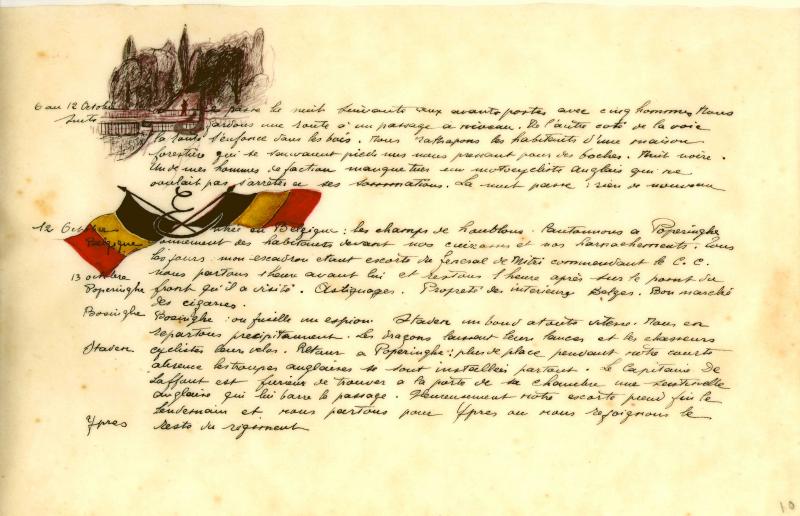 6 au 12 Octobre Je passe la nuit suivante aux avants postes avec cinq hommes. Nous
suite gardons une route à un passage a niveau. De l'autre coté de la voie
la route s'enfonce dans les bois. Nous rattrapons les habitants d'une maison
forestière qui se sauvaient pieds nus nous prenant pour des boches. Nuit noire.
Un de mes hommes de faction manque tuer un motocycliste anglais qui ne
voulait pas s'arrêter a ses sommations. La nuit passe : rien de nouveau
12 Octobre Entrée en Belgique : les champs de houblons. Cantonnons a Poperinghe
Belgique Etonnement des habitants devant nos cuirasses et nos harnachements. Tous
les jours mon escadron etant escorte du General de Mitri commandant le C. C.
13 octobre nous partons 1 heure avant lui et restons 1 heure après sur le point du
Poperinghe front qu'il a visité. Astiquages. Propreté des interieurs Belges. Bon marché
des cigares.
Boesinghe Boesinghe : on fusille un espion. Staden un bond a toute vitesse. Nous en
repartons precipitamment. Les dragons laissent leurs lances et les chasseurs
Staden cyclistes leurs vélos. Retour a Poperinghe : plus de place pendant notre courte
absence les troupes anglaises se sont installées partout. Le Capitaine de
Laffaut est furieux de trouver a la porte de sa chambre une sentinelle
anglaise qui lui barre le passage. Heureusement notre escorte prend fin le
lendemain et nous partons pour Ypres ou nous rejoignons le
Ypres reste du régiment
10